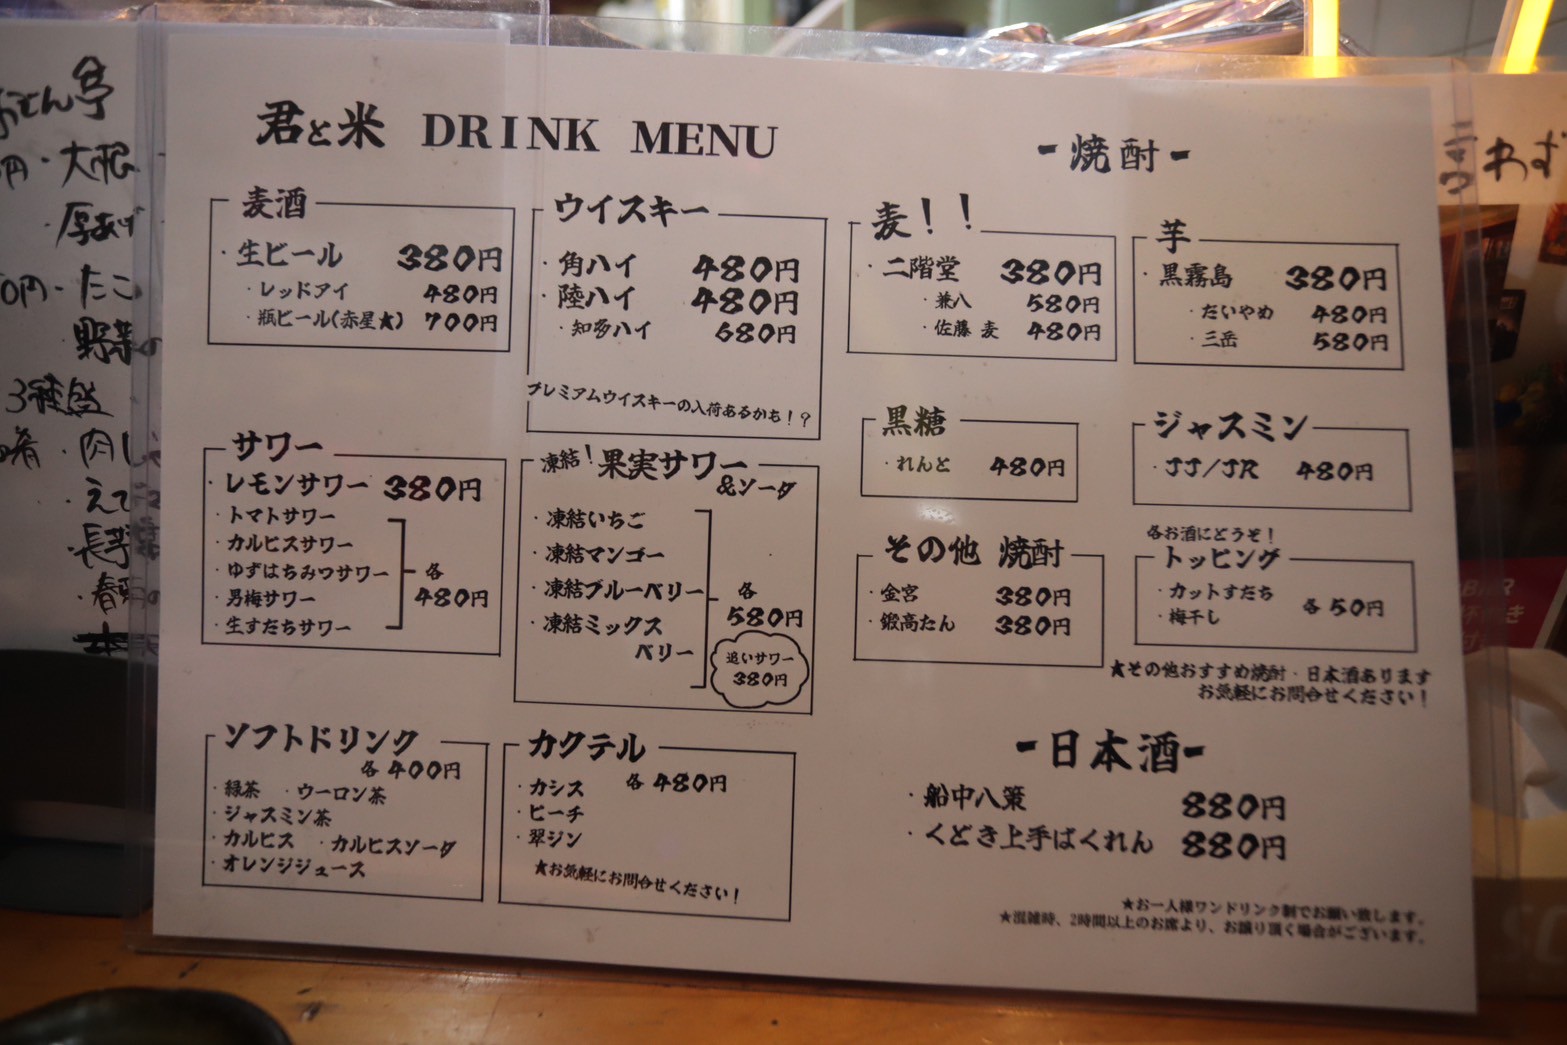 君と米 DRINK MENU
麦酒
・生ビール 380円
・レッドアイ 480円
・瓶ビール(赤星★) 700円
ウイスキー
・角ハイ 480円
・陸ハイ 480円
・知多ハイ 680円
プレミアムウイスキーの入荷あるかも!?
サワー
・レモンサワー 380円
・トマトサワー
・カルピスサワー
・ゆずはちみつサワー
・男梅サワー
・生すだちサワー
各
480円
凍結!果実サワー
&ソーダ
・凍結いちご
・凍結マンゴー
・凍結ブルーベリー
・凍結ミックス
ベリー
各
580円
追いサワー
380円
ソフトドリンク
各400円
・緑茶 ・ウーロン茶
・ジャスミン茶
・カルピス ・カルピスソーダ
・オレンジジュース
カクテル
・カシス 各480円
・ピーチ
・翠ジン
★お気軽にお問合せください!
-焼酎-
麦!!
・二階堂 380円
・兼八 580円
・佐藤 麦 480円
芋
・黒霧島 380円
・だいやめ 480円
・三岳 580円
黒糖
・れんと 480円
ジャスミン
・JJ/JR 480円
その他 焼酎
・金宮 380円
・鍛高たん 380円
各お酒にどうぞ!
トッピング
・カットすだち
・梅干し
各50円
★その他おすすめ焼酎・日本酒あります
お気軽にお問合せください!
-日本酒-
・船中八策 880円
・くどき上手ばくれん 880円
★お一人様ワンドリンク制でお願い致します。
★混雑時、2時間以上のお席より、お譲り頂く場合がございます。
おでん亭
円・大根
・厚あげ
0円・たこ
野菜の
3種盛
・肉し
・えて
・長芋
・春